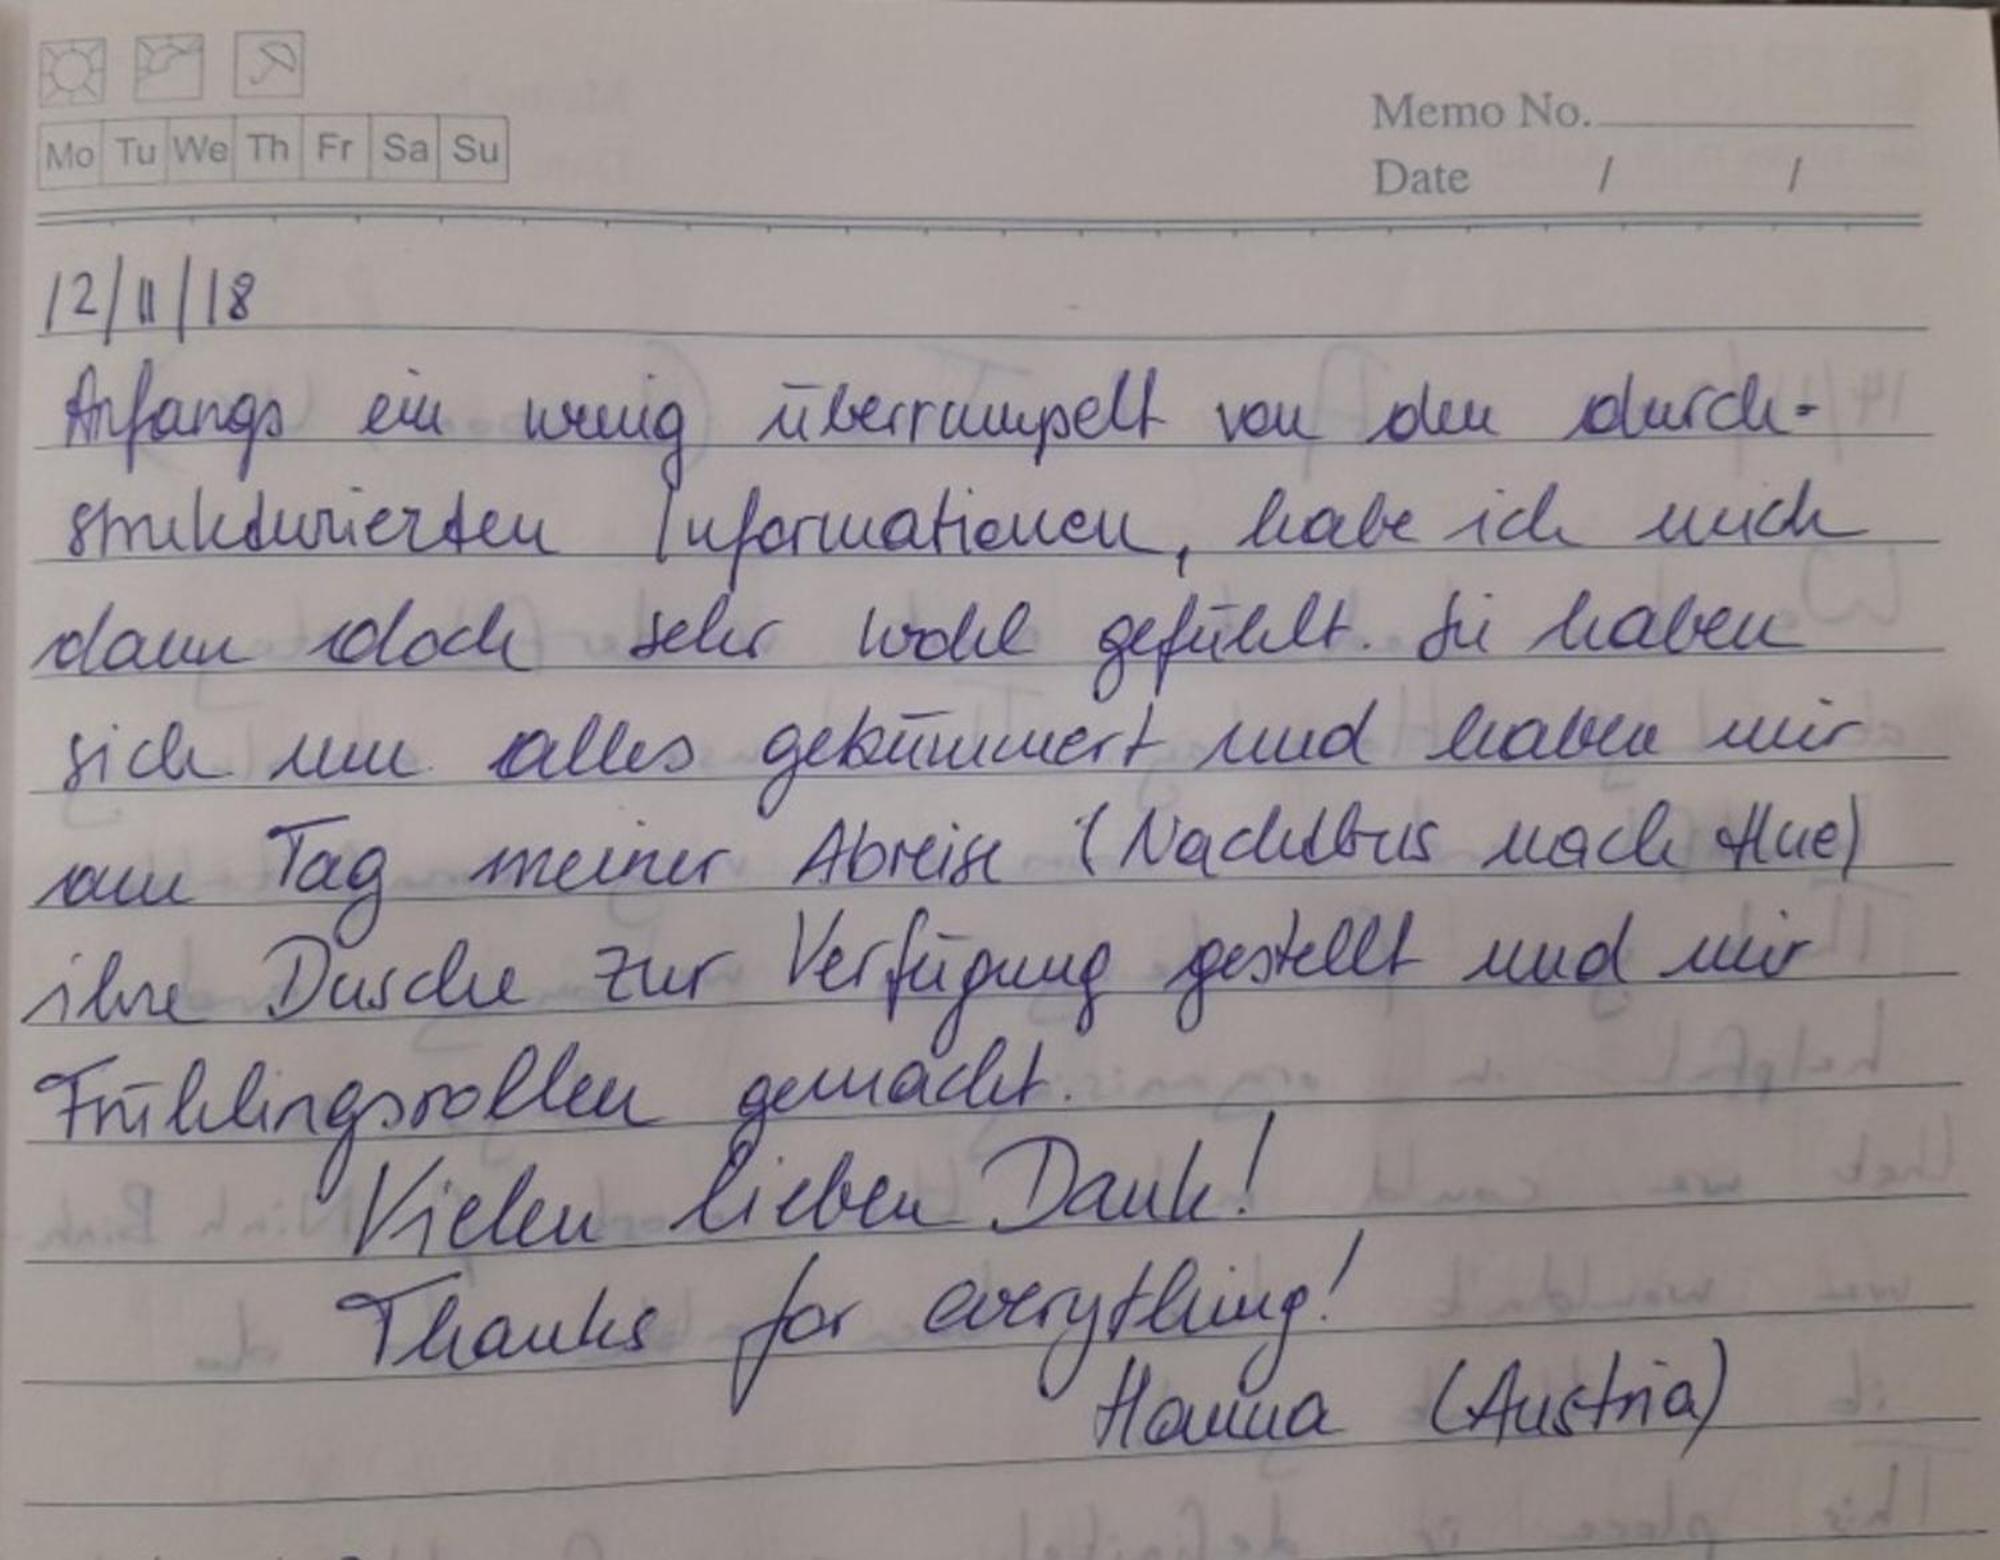 Mo Tu We Th Fr Sa Su
Memo No.
Date / /
12/11/18
Anfangs ein wenig überrumpelt von den durch-
strukturierten Informationen, habe ich mich
dann doch sehr wohl gefühlt. Sie haben
sich um alles gekümmert und haben mir
am Tag meiner Abreise (Nachtbus nach Hue)
ihre Dusche zur Verfügung gestellt und mir
Frühlingsrollen gemacht.
Vielen lieben Dank!
Thanks for everything!
Hanna (Austria)